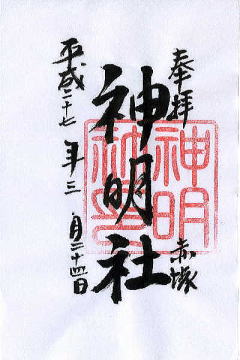 奉拝
赤塚
神明社
平成二十七年三月二十四日
神明社印